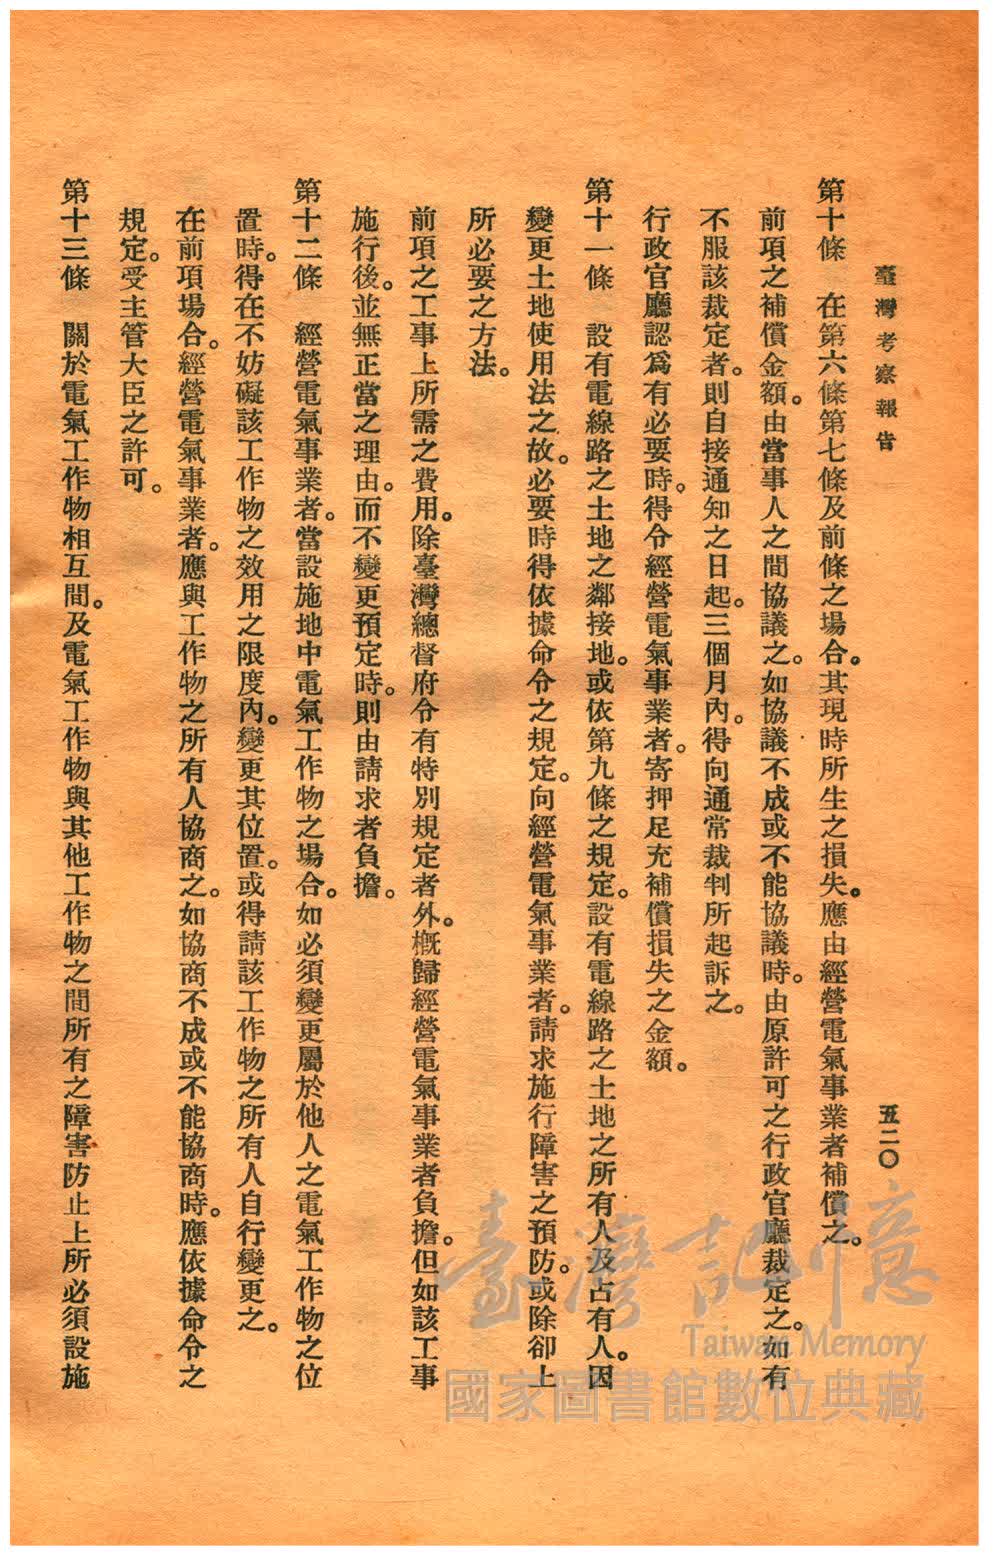 臺灣考察報告
五二〇
第十條　在第六條第七條及前條之場合。其現時所生之損失。應由經營電氣事業者補償之。
前項之補償金額。由當事人之間協議之。如協議不成或不能協議時。由原許可之行政官廳裁定之。如有
不服該裁定者。則自接通知之日起。三個月內。得向通常裁判所起訴之。
行政官廳認爲有必要時。得令經營電氣事業者。寄押足充補償損失之金額。
第十一條　設有電線路之土地之鄰接地。或依第九條之規定。設有電線路之土地之所有人及占有人。因
變更土地使用法之故。必要時得依據命令之規定。向經營電氣事業者。請求施行障害之預防。或除卻上
所必要之方法。
前項之工事上所需之費用。除臺灣總督府令有特別規定者外。槪歸經營電氣事業者負擔。但如該工事
施行後。並無正當之理由。而不變更預定時。則由請求者負擔。
第十二條　經營電氣事業者。當設施地中電氣工作物之場合。如必須變更屬於他人之電氣工作物之位
置時。得在不妨礙該工作物之效用之限度內。變更其位置。或得請該工作物之所有人自行變更之。
在前項場合。經營電氣事業者。應與工作物之所有人協商之。如協商不成或不能協商時。應依據命令之
規定。受主管大臣之許可。
第十三條　關於電氣工作物相互間。及電氣工作物與其他工作物之間所有之障害防止上所必須設施
臺灣記憶
Taiwan Memory
國家圖書館數位典藏